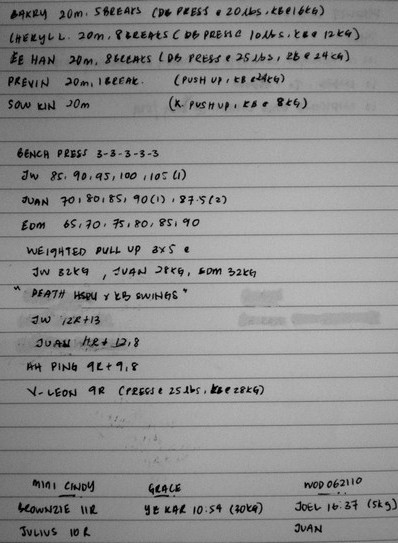 BAKRY 20m, 5 BREAKS (DB PRESS @ 20 lbs, KB @ 16KG)
CHERYL L. 20m, 8 BREAKS (DB PRESS 10 lbs, KB @ 12KG)
EE HAN 20m, 8 BREAKS (DB PRESS @ 25 lbs, KB @ 24KG)
PREVIN 20m, 1 BREAK. (PUSH UP, KB @ 24KG)
SOW KIN 20m (K. PUSH UP, KB @ 8KG)
BENCH PRESS 3-3-3-3-3
JW 85, 90, 95, 100, 105 (1)
JUAN 70, 80, 85, 90 (1), 87.5 (2)
EDM 65, 70, 75, 80, 85, 90
WEIGHTED PULL UP 3x5 @
JW 32KG, JUAN 28KG, EDM 32KG
"DEATH HSPU x KB SWINGS"
JW 12R+13
JUAN + 12,8
AH PING 9R + 9,8
Y-LEON 9R (PRESS @ 25 lbs, KB @ 28KG)
MINI CINDY GRACE WOD 062110
BROWNZIE 11R YE KAR 10:54 (30KG) JOEL 16:37 (5kg)
JULIUS 10R JUAN